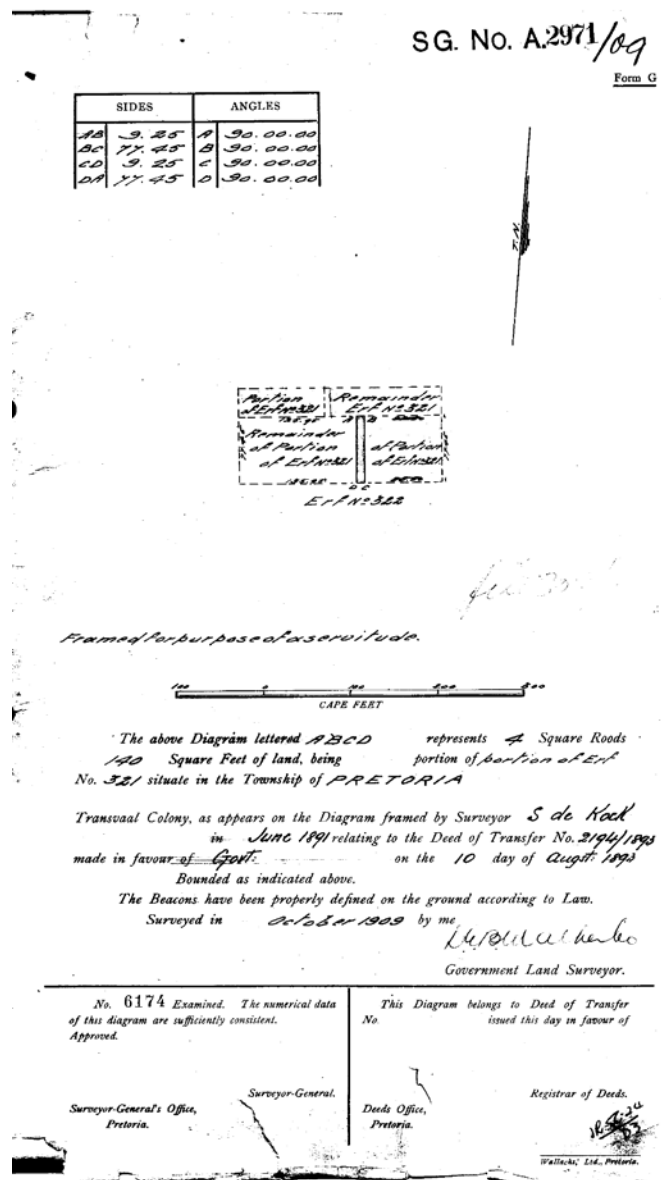 SG. No. A.2971/09
Form G
SIDES ANGLES
AB 9.25 A 90.00.00
BC 77.45 B 90.00.00
CD 9.25 C 90.00.00
DA 77.45 D 90.00.00
T.N.
Portion Remainder
of Erf No 321 Erf No 321
A B
Remainder
of Portion of Portion
of Erf No 321 of Erf No 321
D C
Erf No 322
Framed for purpose of a servitude.
100 0 100 200 300
CAPE FEET
The above Diagram lettered ABCD represents 4 Square Roods
140 Square Feet of land, being portion of portion of Erf
No. 321 situate in the Township of PRETORIA
Transvaal Colony, as appears on the Diagram framed by Surveyor S de Kock
in June 1891 relating to the Deed of Transfer No. 2194/1893
made in favour of Govt: on the 10 day of Augst: 1893
Bounded as indicated above.
The Beacons have been properly defined on the ground according to Law.
Surveyed in October 1909 by me
Government Land Surveyor.
No. 6174 Examined. The numerical data
of this diagram are sufficiently consistent.
Approved.
Surveyor-General.
Surveyor-General's Office,
Pretoria.
This Diagram belongs to Deed of Transfer
No. issued this day in favour of
Registrar of Deeds.
Deeds Office,
Pretoria.
Wallachs, Ltd., Pretoria.